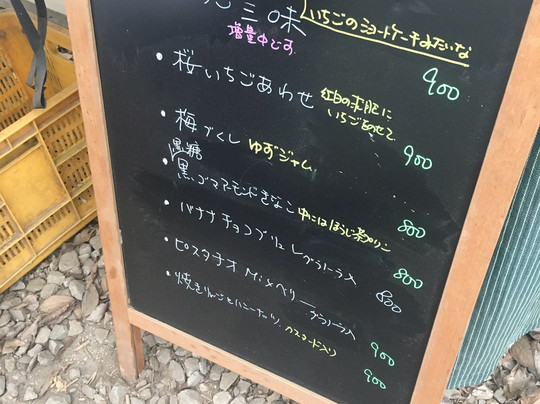 三味
いちごのショートケーキみたいな
増量中です
900
・桜いちごあわせ 紅白の求肥に
いちごあわせて
900
・梅づくし ゆずジャム
800
黒糖
・黒ゴマアーモンドきなこ 中にはほうじ茶プリン
800
・バナナチョコブリュレ グラノーラ入
800
・ピスタチオ Mixベリー グラノーラ入
900
・焼きりんごとハニーナッツ カスタード入り
900